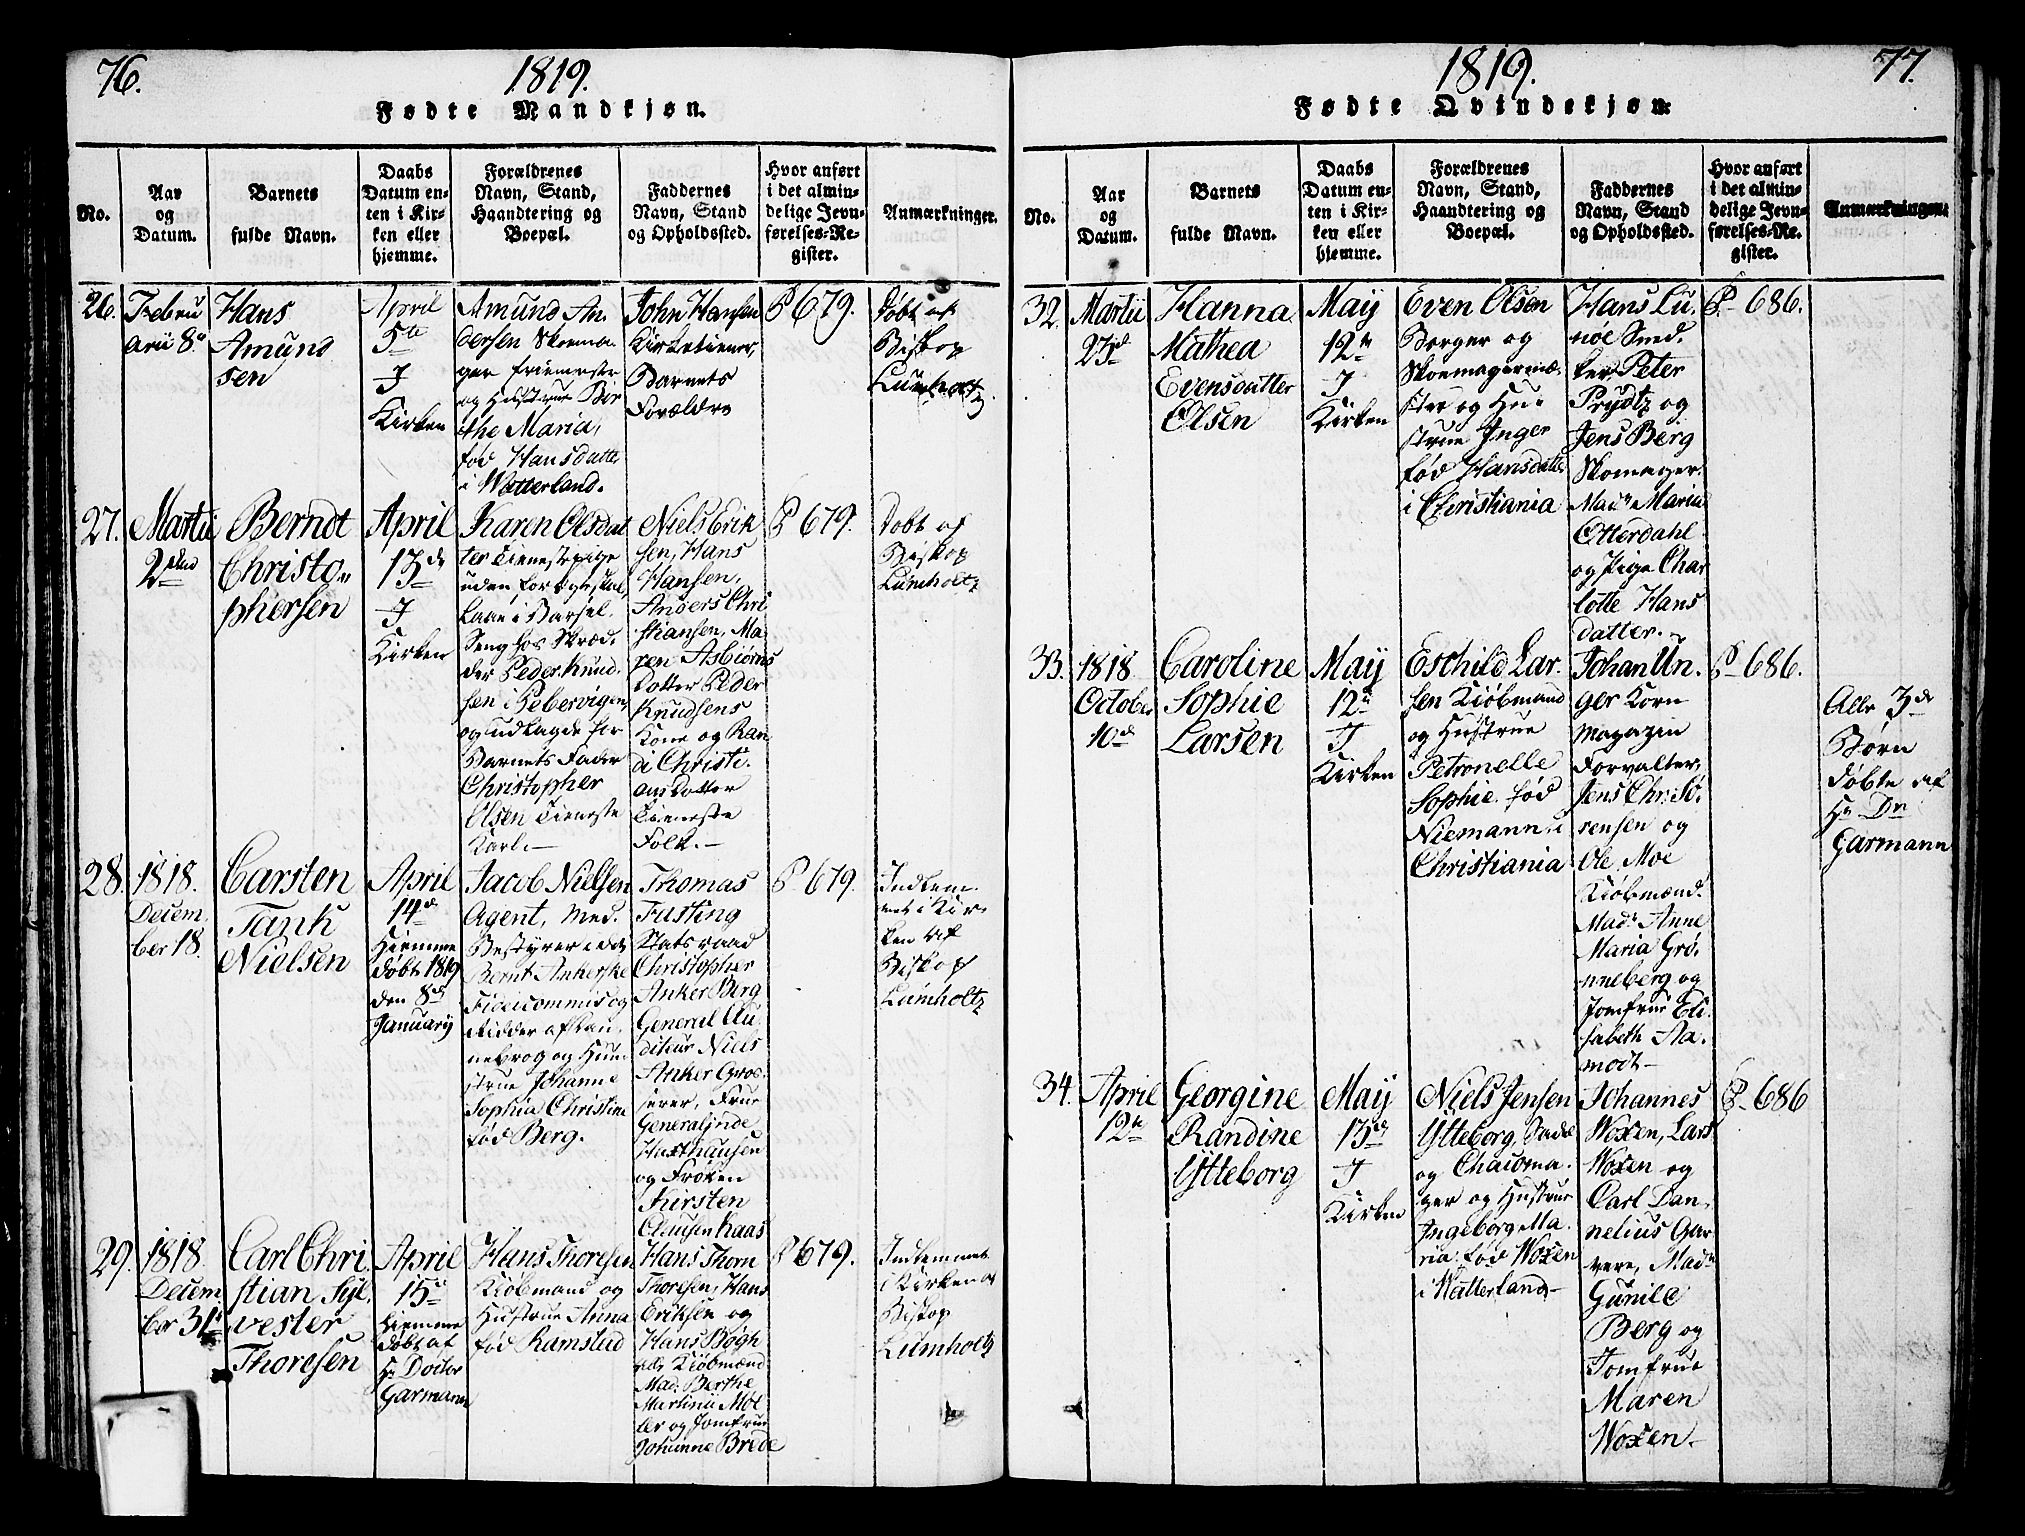 76.
1819.
Fødte Mandkjøn.
No.
Aar
og
Datum.
Barnets
fulde Navn.
Daabs
Datum en-
ten i Kir-
ken eller
hjemme.
Forældrenes
Navn, Stand,
Haandtering og
Boepæl.
Faddernes
Navn, Stand
og Opholdssted.
Hvor anført
i det almin-
delige Jevn-
førelses-Re-
gister.
Anmærkninger.
26.
Febru
arii 8.
Hans
Amund
sen
April
5te
I
Kirken
Amund An
dersen Skoema
ger friemester
og Hustrue Bir
the Maria,
fød Hansdatter
i Watterland.
John Hansen
Kirketiener,
Barnets
Forældre
P 679.
Døbt af
Biskop
Lumholtz
27.
Martii
2den
Berndt
Christo-
phersen
April
13de
I
Kirken
Karen Olsdat
ter Tienestepige
uden
Laae i Barsel
Seng hos Skræd,
der Peder Knud
sen i Pebervigen
og udlagde for
Barnets Fader
Christopher
Olsen Tieneste
Karl.
Niels Erik
sen, Hans
Hansen,
Anders Chri
stiansen, Ma
ren Asbiørns
dotter Peder
Knudsens
Kone og Ran
di Christi-
ansdotter
Tieneste
Folk.
P 679.
Døbt af
Biskop
Lumholtz
28.
1818.
Decem
ber 18.
Carsten
Tank
Nielsen
April
14d
Hiemme
døbt 1819
den 8d
January
Jacob Nielsen
Agent, Med-
Bestyrer i det
Bernt Ankerske
Fideicommis og
Ridder af Dan-
nebrog og Hu-
strue Johanne
Sophia Christine
fød Berg.
Thomas
Fasting
Statsraad
Christopher
Anker Berg
General Au-
diteur Niels
Anker Gros-
serer, Frue
Generalinde
Haxthausen
og Frøken
Kirsten
Clausen Kaas
P 679.
Indlem-
met i Kir-
ken af
Biskop
Lumholtz
29.
1818
Decem
ber 31.
Carl Chri
stian Syl,
vester
Thoresen
April
15d
Hiemme
døbt af
Hr Doctor
Garmann
Hans Thoresen
Kiøbmand og
Hustrue Anna
fød Ramstad
Hans Thorn
Thoresen, Hans
Eriksen og
Hans Bøgh
alle Kiøbmænd
Mad. Berthe
Martinii Møl
ler og Jomfrue
Johanne Brede
P 679.
Indlemmet
i Kirken af
Biskop
Lumholtz
1819.
77.
Fødte Qvindekjøn.
No.
Aar
og
Datum.
Barnets
fulde Navn.
Daabs
Datum en-
ten i Kir-
ken eller
hjemme.
Forældrenes
Navn, Stand,
Haandtering og
Boepæl.
Faddernes
Navn, Stand
og Opholdssted.
Hvor anført
i det almin-
delige Jevn-
førelses-Re-
gister.
Anmærkninger.
32.
Martii
23d
Hanna
Mathea
Evensdatter
Olsen
May
12te
I
Kirken
Even Olsen
Borger og
Skoemagermæ-
ster og Hu-
strue Inger
fød Hansdatter
i Christiania
Hans Lu-
nøe Sned-
ker Peter
Prydtz og
Jens Berg
Skomager.
Madm Maria
Otterdahl
og Pige Char
lotte Hans
datter.
P 686.
33.
1818
October
10d
Caroline
Sophie
Larsen
May
12te
I
Kirken
Eschild Lar-
sen Kiøbmand
og Hustrue
Petronelle
Sophie fød
Niemann i
Christiania
Johan Un-
ger Korn
Magazin
Forvalter,
Jens Chr: Sø-
rensen og
Ole Moe
Kiøbmænd.
Madm Anne
Maria Grø-
nneberg og
Jomfrue Eli-
sabeth Aa-
modt
P 686.
Alle 3de
Børn
døbte af
Hr Dr
Garmann
34.
April
12te
Georgine
Randine
Ytteborg
May
13d
I
Kirken
Niels Jensen
Ytteborg, Sadel
og Chaisema-
ger og Hustrue
Ingeborg Ma-
ria fød Woxen
i Watterland
Johannes
Woxen, Lars
Woxen og
Carl Dan-
nelius Gar-
vere, Madm
Gunild
Berg og
Jomfrue
Maren
Woxen
P 686